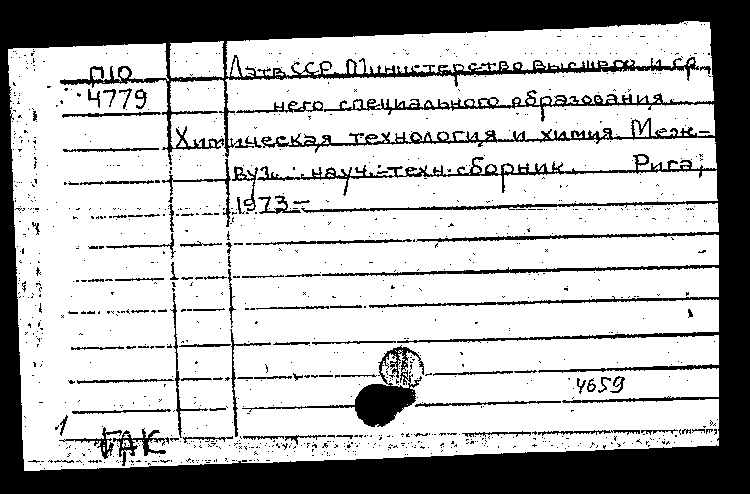 П10 Латв.ССР. Министерство высшего и ср.
4779 него специального образования.
Химическая технология и химия. Меж-
вуз. науч.-техн. сборник. Рига,
1973-
4659
1
БАК